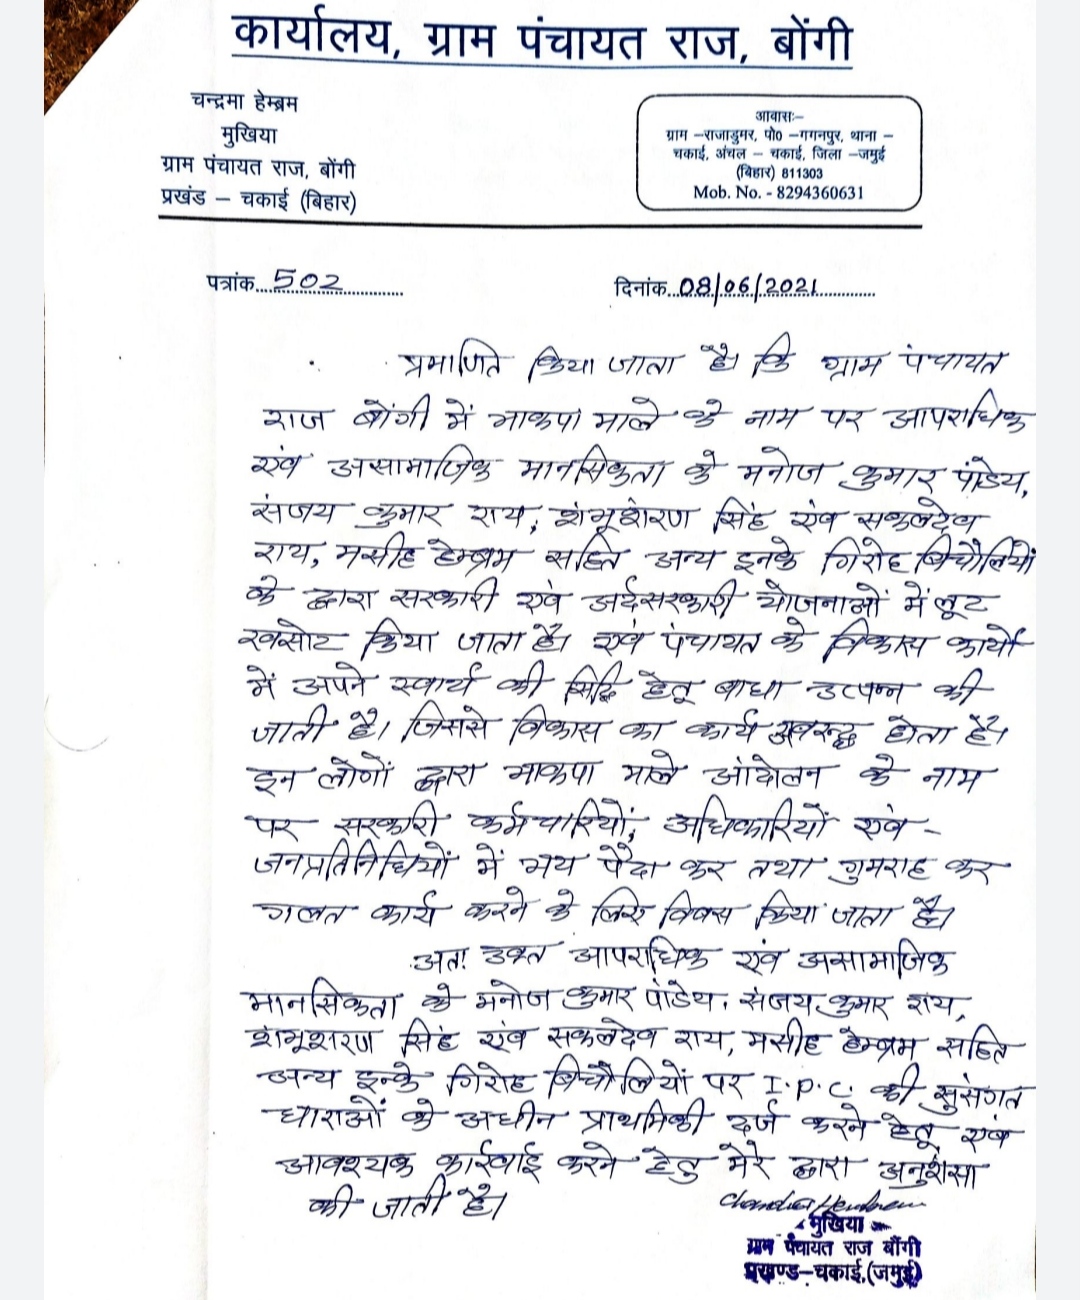 कार्यालय, ग्राम पंचायत राज, बोंगी
चन्द्रमा हेम्ब्रम
मुखिया
ग्राम पंचायत राज, बोंगी
प्रखंड – चकाई (बिहार)
आवासः–
ग्राम –राजाडुमर, पो० –गगनपुर, थाना –
चकाई, अंचल – चकाई, जिला –जमुई
(बिहार) 811303
Mob. No. - 8294360631
पत्रांक...502...........
दिनांक...08/06/2021............
प्रमाणित किया जाता है। कि ग्राम पंचायत
राज बोंगी में भाकपा माले के नाम पर आपराधिक
एंव असामाजिक मानसिकता के मनोज कुमार पांडेय,
संजय कुमार राय, शंभूशरण सिंह एंव सकलदेव
राय, मसीह हेम्ब्रम सहित अन्य इनके गिरोह बिचौलियों
के द्वारा सरकारी एंव अर्दसरकारी योजनाओं में लूट
खसोट किया जाता है। एंव पंचायत के विकास कार्यो
में अपने स्वार्थ की सिद्धि हेतू बाधा उत्पन्न की
जाती है। जिससे विकास का कार्य अवरूद्ध होता है।
इन लोगों द्वारा भाकपा माले आंदोलन के नाम
पर सरकारी कर्मचारियों, अधिकारियों एंव -
जनप्रतिनिधियों में भय पैदा कर तथा गुमराह कर
गलत कार्य करने के लिए विवस किया जाता है।
अतः उक्त आपराधिक एंव असामाजिक
मानसिकता के मनोज कुमार पांडेय, संजय कुमार राय,
शंभूशरण सिंह एंव सकलदेव राय, मसीह हेम्ब्रम सहित
अन्य इनके गिरोह बिचौलियों पर I.P.C. की सुसंगत
धाराओं के अधीन प्राथमिकी दर्ज करने हेतू एंव
आवश्यक कार्रवाई करने हेतु मेरे द्वारा अनुशंसा
की जाती है।
Chandra Hembram
मुखिया
ग्राम पंचायत राज बोंगी
प्रखण्ड–चकाई,(जमुई)